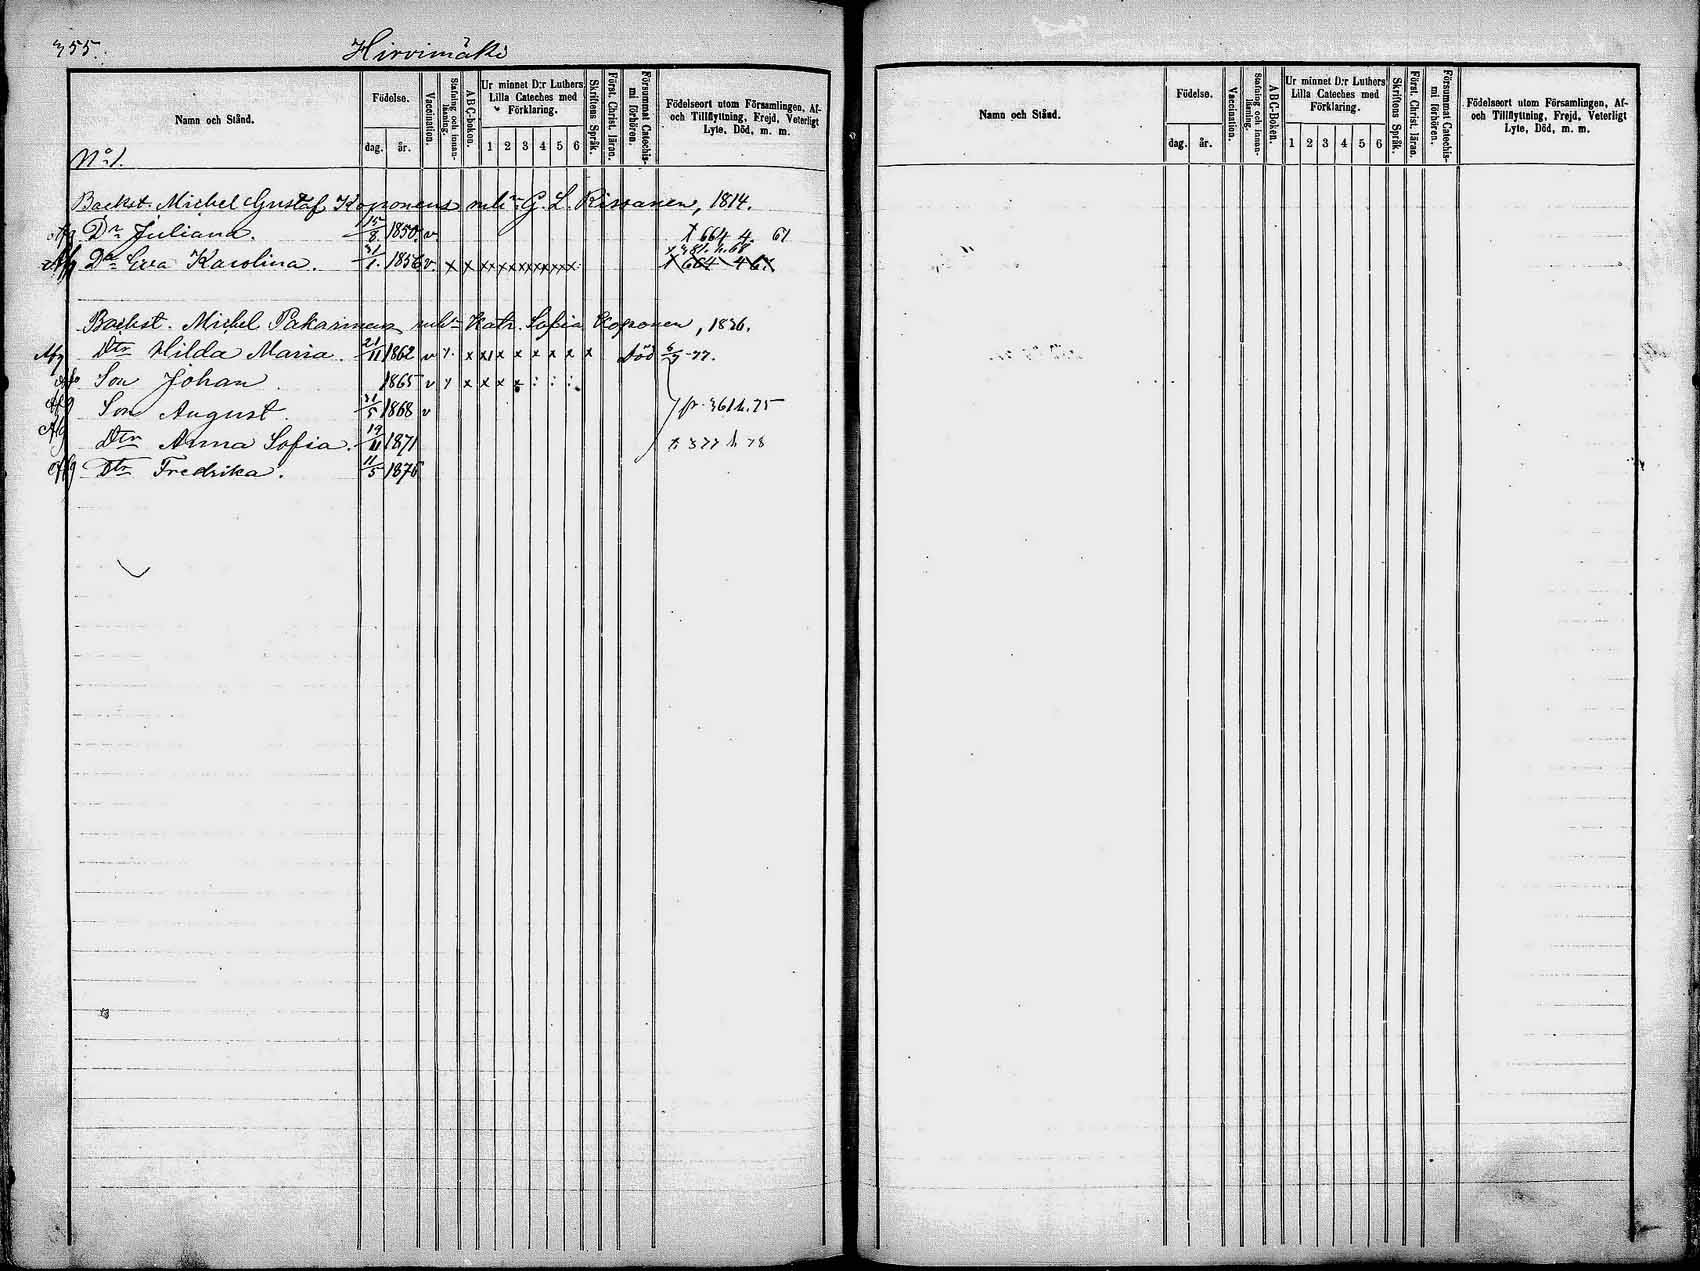 355.
Hirvimäki
Namn och Stånd.
Födelse.
dag. år.
Vaccination.
Stafning och innan-läsning.
ABC-boken.
Ur minnet D:r Luthers
Lilla Cateches med
Förklaring.
1 2 3 4 5 6
Skriftens Språk.
Först. Christ. läran.
Försummat Catechis-
mi förhören.
Födelseort utom Församlingen, Af-
och Tillflyttning, Frejd, Veterligt
Lyte, Död, m. m.
No 1.
Backst. Michel Gustaf Koponens G. L. Rissanen, 1814.
Afg Dr Juliana. 15/8 1850 v. 664 4. 61
Afg Dr Eva Karolina. 31/1. 1856 v x x xx x x x x x 381. h. 68
x 664 4 6
Backst. Michel Pakarinens Katr. Sofia Koponen, 1836.
Afg Dtr Hilda Maria. 21/11 1862 v x x x x x x x x Död 6/5 -77.
Afg Son Johan 1865 v x x x x : : :
Afg Son August. 31/5 1868 v p. 361 h. 75
Afg Dtr Anna Sofia. 19/11 1871 377 h 78
Afg Dtr Fredrika. 11/5 1876
Namn och Stånd.
Födelse.
dag. år.
Vaccination.
Stafning och innan-
läsning.
ABC-Boken.
Ur minnet D:r Luthers
Lilla Cateches med
Förklaring.
1 2 3 4 5 6
Skriftens Språk.
Först. Christ. läran.
Försummat Catechis-
mi förhören.
Födelseort utom Församlingen, Af-
och Tillflyttning, Frejd, Veterligt
Lyte, Död, m. m.